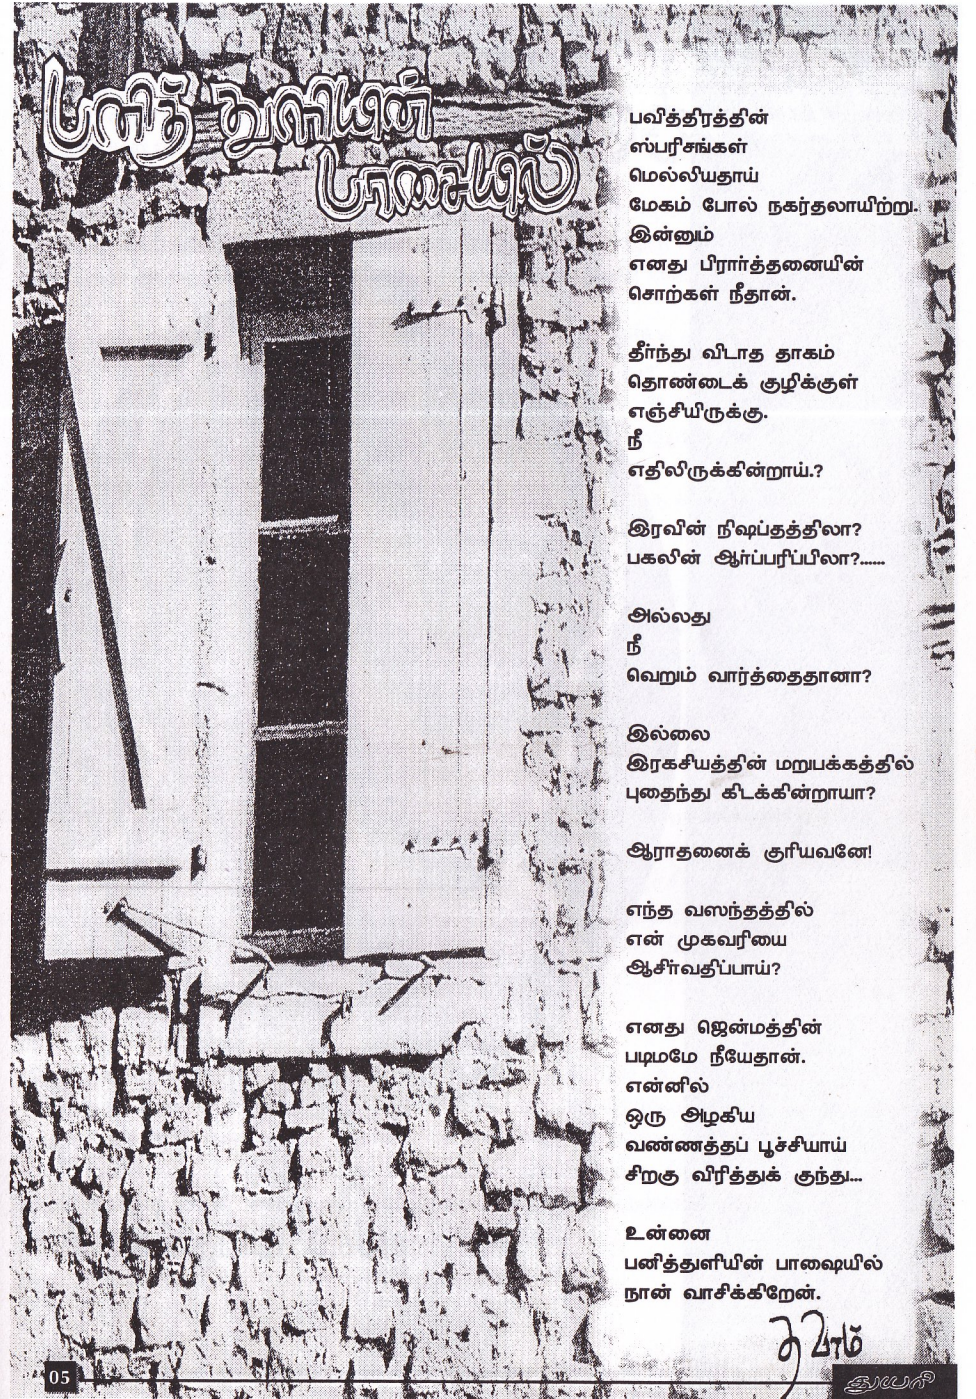 பனித் துளியின்
பாசையில்
பவித்திரத்தின்
ஸ்பரிசங்கள்
மெல்லியதாய்
மேகம் போல் நகர்தலாயிற்று.
இன்னும்
எனது பிரார்த்தனையின்
சொற்கள் நீதான்.
தீர்ந்து விடாத தாகம்
தொண்டைக் குழிக்குள்
எஞ்சியிருக்கு.
நீ
எதிலிருக்கின்றாய்.?
இரவின் நிஷப்தத்திலா?
பகலின் ஆர்ப்பரிப்பிலா?......
அல்லது
நீ
வெறும் வார்த்தைதானா?
இல்லை
இரகசியத்தின் மறுபக்கத்தில்
புதைந்து கிடக்கின்றாயா?
ஆராதனைக் குரியவனே!
எந்த வஸந்தத்தில்
என் முகவரியை
ஆசிர்வதிப்பாய்?
எனது ஜென்மத்தின்
படிமமே நீயேதான்.
என்னில்
ஒரு அழகிய
வண்ணத்தப் பூச்சியாய்
சிறகு விரித்துக் குந்து...
உன்னை
பனித்துளியின் பாஷையில்
நான் வாசிக்கிறேன்.
தவாம்
05